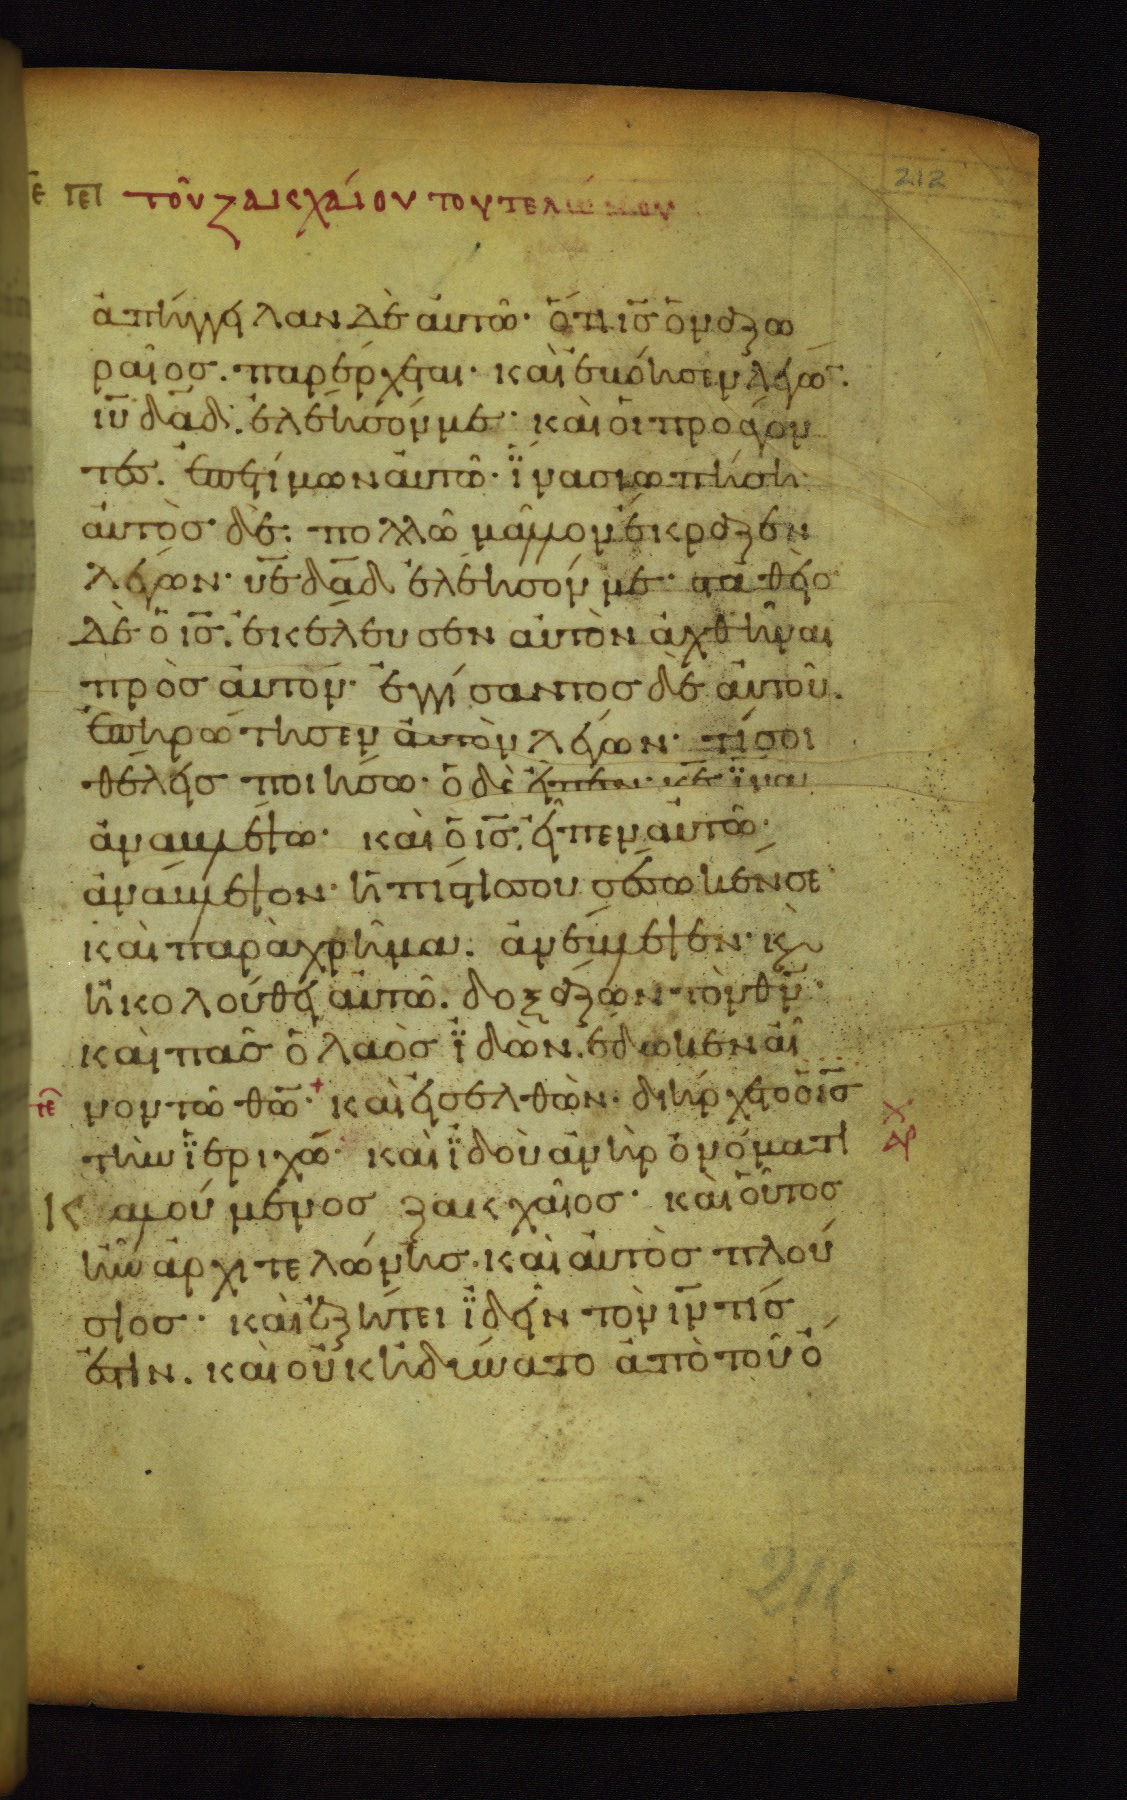 τοῦ ζακχαίου του τελώνου
212
ἀπήγγειλαν δὲ αὐτῶ· ὅτι ισ ὁ ναζω
ραῖοσ. παρέρχεται· καὶ ἐφώνησεν λέγω.
ιυ δαδ. ἐλέησόν με· καὶ οἱ προάγον
τεσ. ἐπετίμων αὐτῶ· ἵνα σιωπήση
αὐτὸσ δὲ. πολλῶ μᾶλλον ἔκραζεν
λέγων· υε δαδ ἐλέησόν με· σταθεὶσ
δὲ ὁ ισ. ἐκέλευσεν αὐτὸν ἀχθῆναι
πρὸσ αὐτον· ἐγγίσαντοσ δὲ αὐτοῦ.
ἐπηρώτησεν αὐτὸν λέγων· τί σοι
θέλεισ ποιήσω· ὁ δὲ εἶπεν· κε ἵνα
ἀναβλέψω· καὶ ὁ ισ. εἶπεν αὐτῶ·
ἀνάβλεψον· ἡ πίστισ σου σέσωκέν σε·
καὶ παρὰχρῆμα. ἀνέβλεψεν· κὶ
ἠκολούθει αὐτῶ. δοξάζων τὸν θν·
καὶ πᾶσ ὁ λαὸσ ἰδὼν. ἔδωκεν αἶ
νον τῶ θω· καὶ εἰσελθὼν· διήρχετο ὁ ισ
τὴν ἱεριχώ· καὶ ἰδοὺ ἀνὴρ ὀνόματι
καλούμενοσ ζακχαῖοσ· καὶ οὗτοσ
ἦν ἀρχιτελώνησ. καὶ αὐτὸσ πλού
σιοσ· καὶ ἐζήτει ἰδεῖν τὸν ιν τίσ
ἐστιν. καὶ οὐκ ἠδύνατο ἀπὸ τοῦ ὄ